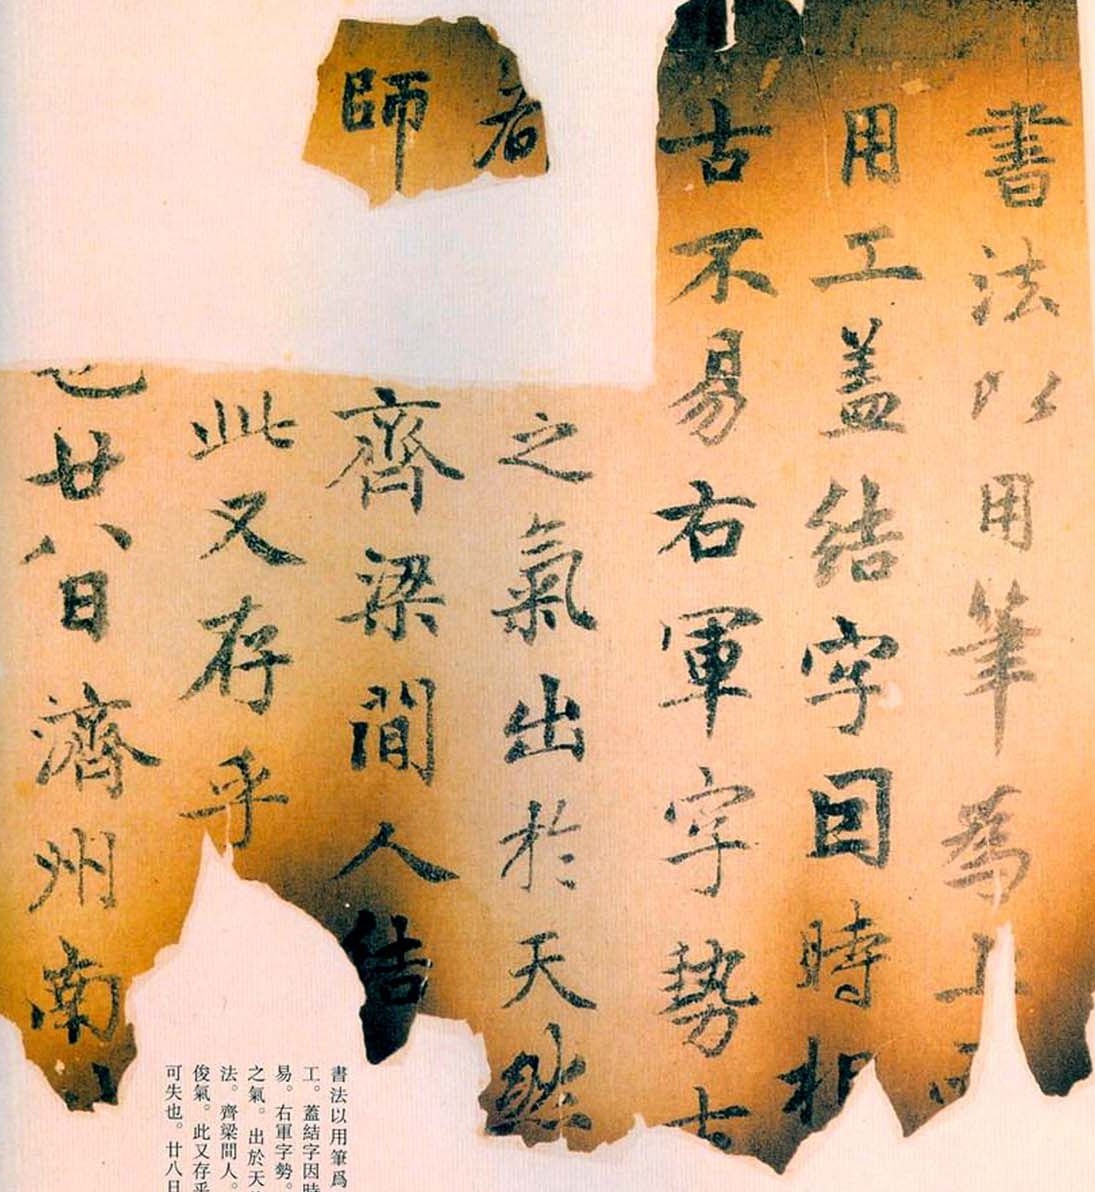 書法以用筆為上
用工蓋結字因時相
古不易右軍字勢古
者
之氣出於天然
師
齊梁間人結
此又存乎
也廿八日濟州南
書法以用筆爲
工。蓋結字因時
易。右軍字勢。
之氣。出於天
法。齊梁間人。
俊氣。此又存乎
可失也。廿八日